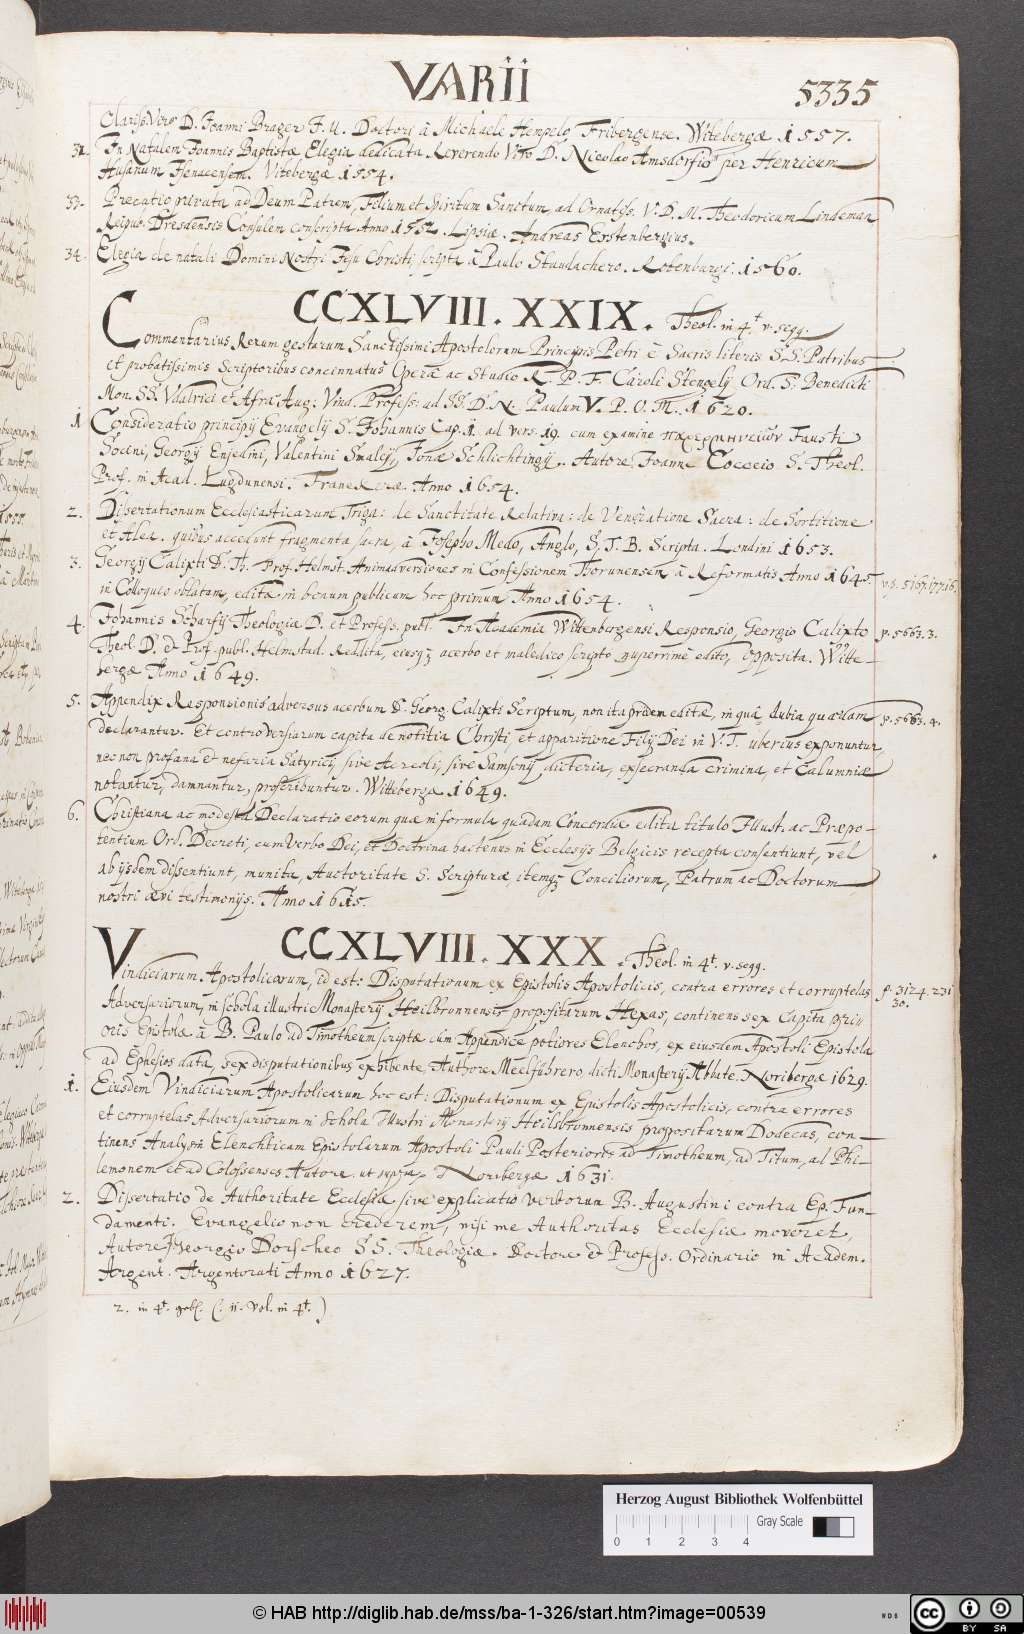 VARII
5335
Clariss. Viro D. Joanni Brager J. U. Doctori â Michaele Hempelo Fribergense. Witebergæ 1557.
32. In Natalem Joannis Baptistæ Elegia dedicata Reverendo Viro D. Nicolao Amsdorfio per Henricum
Husanum Isenacensem. Vitebergæ 1554.
33. Precatio privata ad Deum Patrem, Filium et Spiritum Sanctum, ad Ornatiss. V. D. M. Theodoricum Lindeman,
Reipub. Dresdensis Consulem conscripta Anno 1552. Lipsiæ. Andreas Erstenbergius.
34. Elegia de natali Domini Nostri Jesu Christi, scripta â Paulo Staudachero. Rotenburgi. 1560.
CCXLVIII. XXIX. Theol. in 4t. v. seqq.
Commentarius Rerum gestarum Sanctissimi Apostolorum Principis Petri è Sacris literis S. S. Patribus
et probatissimis Scriptoribus concinnatus Operâ ac Studio R. P. F. Caroli Stengely Ord. S. Benedicti
Mon. SS. Vdalrici et Afræ Aug: Vind. Profess: ad SS. D. N. Paulum V. P. O. M. 1620.
1 Consideratio principij Evangelij S. Johannis Cap. 1. ad vers. 19. cum examine παρερμηνειῶν Fausti
Socini, Georgij Enjedini, Valentini Smalcij, Jonæ Schlichtingij. Autore Joanne Cocceio S. Theol.
Prof. in Acad. Lugdunensi. Franekeræ. Anno 1654.
2. Dissertationum Ecclesiasticarum Triga: de Sanctitate Relativa: de Veneratione Sacra: de Sortitione
et Alea. quibus accedunt fragmenta sacra, â Josepho Medo, Anglo, S. T. B. Scripta. Londini 1653.
3. Georgij Calixti S. Th. Prof. Helmst. Animadversiones in Confessionem Thorunensem â Reformatis Anno 1645.
in Colloquio oblatam, editæ in bonum publicum hoc primum Anno 1654.
4. Johannis Scharfij Theologiæ D. et Profess. publ. In Academia Wittenbergensi Responsio, Georgio Calixto
p. 5663. 3.
Theol. D. & Prof. publ. Helmstad. Reddita, eiusq; acerbo et maledico scripto nuperrimè edito, opposita. Witte-
bergæ Anno 1649.
5. Appendix Responsionis adversus acerbum D. Georg. Calixti Scriptum, non ita pridem editæ, in quâ dubia quædam
p. 5663. 4.
declarantur. Et controversiarum capita de notitia Christi, et apparitione Filij Dei in V. T. uberius exponuntur
nec non profana et nefaria Satyricij sive Aereoli, sive Samsonij dicteria, exsecranda crimina, et Calumniæ
notantur, damnantur, proscribuntur. Wittebergæ 1649.
6. Christiana ac modesta Declaratio eorum quæ in formula quadam Concordiæ edita titulo Illust. ac Præpo-
tentium Ord. Decreti, cum Verbo Dei, et Doctrina hactenus in Ecclesijs Belgicis recepta consentiunt, vel
ab ijsdem dissentiunt, munita, Auctoritate S. Scripturæ, itemq; Conciliorum, Patrum ac Doctorum
nostri ævi testimonijs. Anno 1615.
CCXLVIII. XXX. Theol. in 4t. v. seqq.
Vindiciarum Apostolicarum, id est: Disputationum ex Epistolis Apostolicis, contra errores et corruptelas
p. 3124. 231
30.
Adversariorum, in schola illustri Monasterij Heilbrunnensis propositarum Hexas, continens sex Capita prio-
oris Epistolæ â B. Paulo ad Timotheum scriptæ cum Appendice potiores Elenchos, ex eiusdem Apostoli Epistola
ad Ephesios data, sex disputationibus exhibente, Authore Meelführero, dicti Monasterij Abbate. Noribergæ 1629.
1. Eiusdem Vindiciarum Apostolicarum hoc est: Disputationum ex Epistolis Apostolicis, contra errores
et corruptelas Adversariorum in Schola Illustri Monasterij Heilsbronnensis propositarum Dodecas, con-
tinens Analysin Elenchticam Epistolarum Apostoli Pauli Posterioris ad Timotheum, ad Titum, ad Phi-
lemonem et ad Colossenses Autore, ut supra. Noribergæ 1631.
2. Dissertatio de Authoritate Ecclesiæ sive explicatio verborum B. Augustini contra Ep. Fun-
damenti. Evangelio non crederem, nisi me Authoritas Ecclesiæ moveret,
Autore Georgio Dorscheo S S. Theologiæ Doctore & Profess. Ordinario in Academ.
Argent. Argentorati Anno 1627.
2. in 4t. (: 11. Vol. in 4t. )
Herzog August Bibliothek Wolfenbüttel
Gray Scale
0 1 2 3 4
© HAB http://diglib.hab.de/mss/ba-1-326/start.htm?image=00539
WDB
cc
BY SA